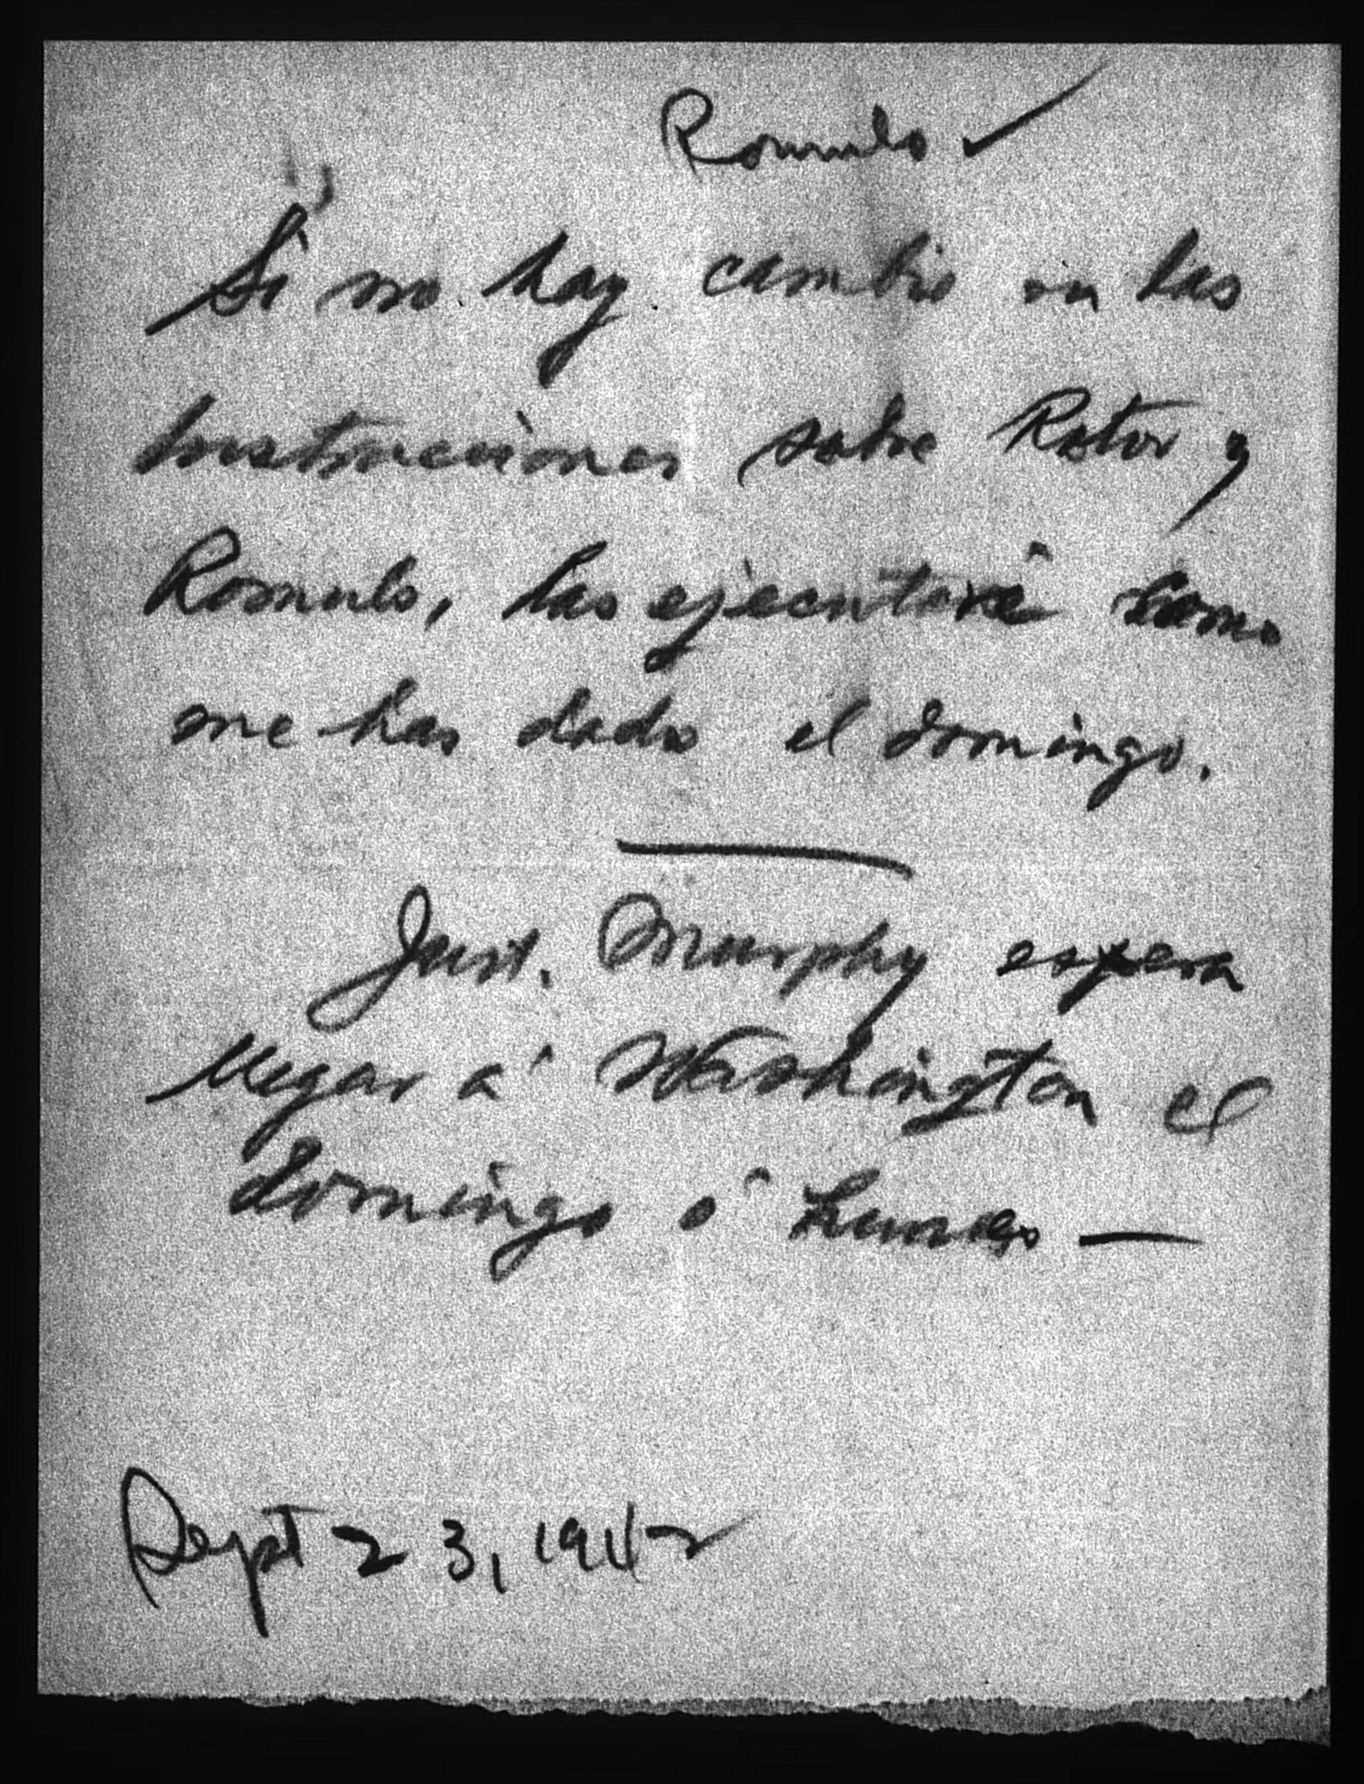 Romulo ✓
Si no hay cambio en las
Instrucciones sobre Rotor y
Romulo, las ejecutaré como
me has dado el domingo.
Just. Murphy espera
llegar á Washington el
domingo ó Lunes —
Sept 23, 1942